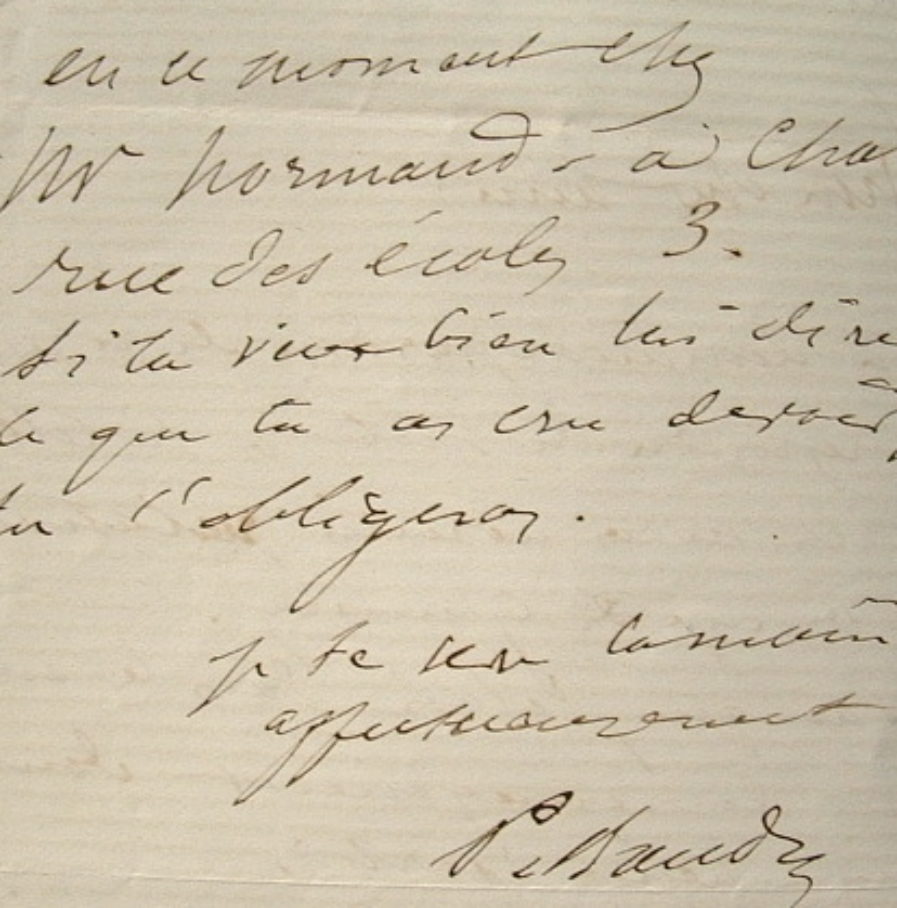 en ce moment chez
Mr Normand - à Cha
rue des écoles 3.
si tu veux bien lui dire
ce que tu as cru devoir
tu l'obligeras.
je te serre la main
affectueusement
P. Baudry